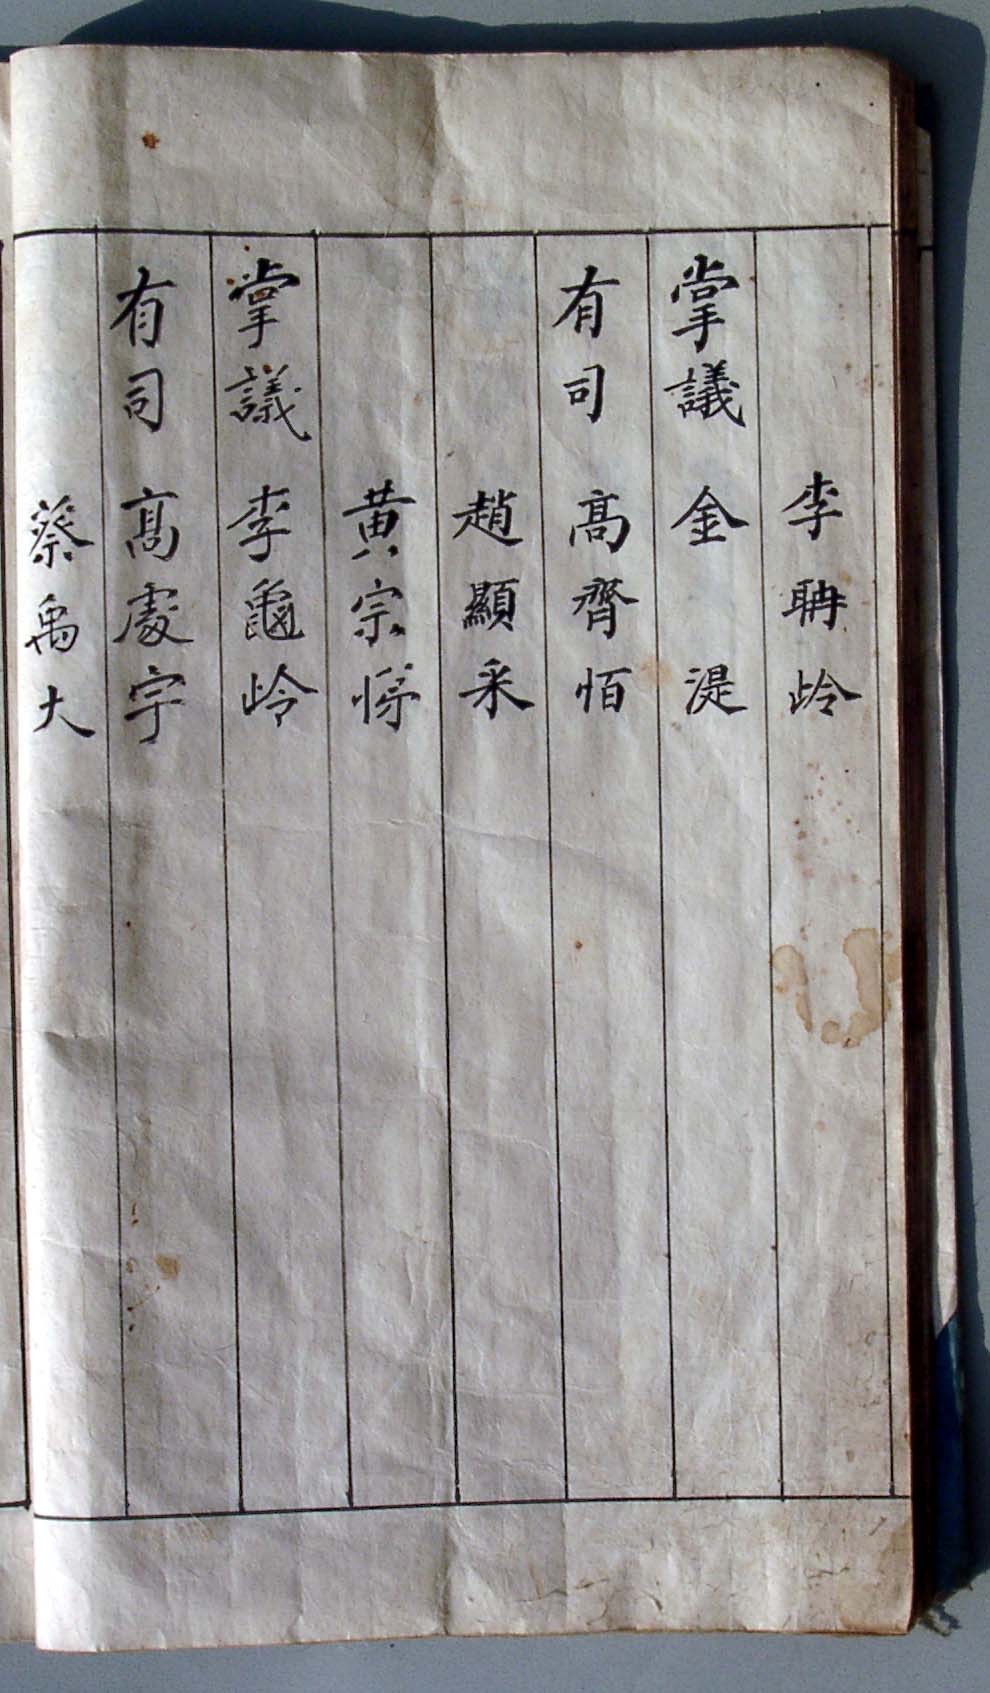 李聃岭
掌議 金湜
有司 高齊恒
趙顯采
黄宗
掌議 李龜岭
有司 高處宇
蔡禹大